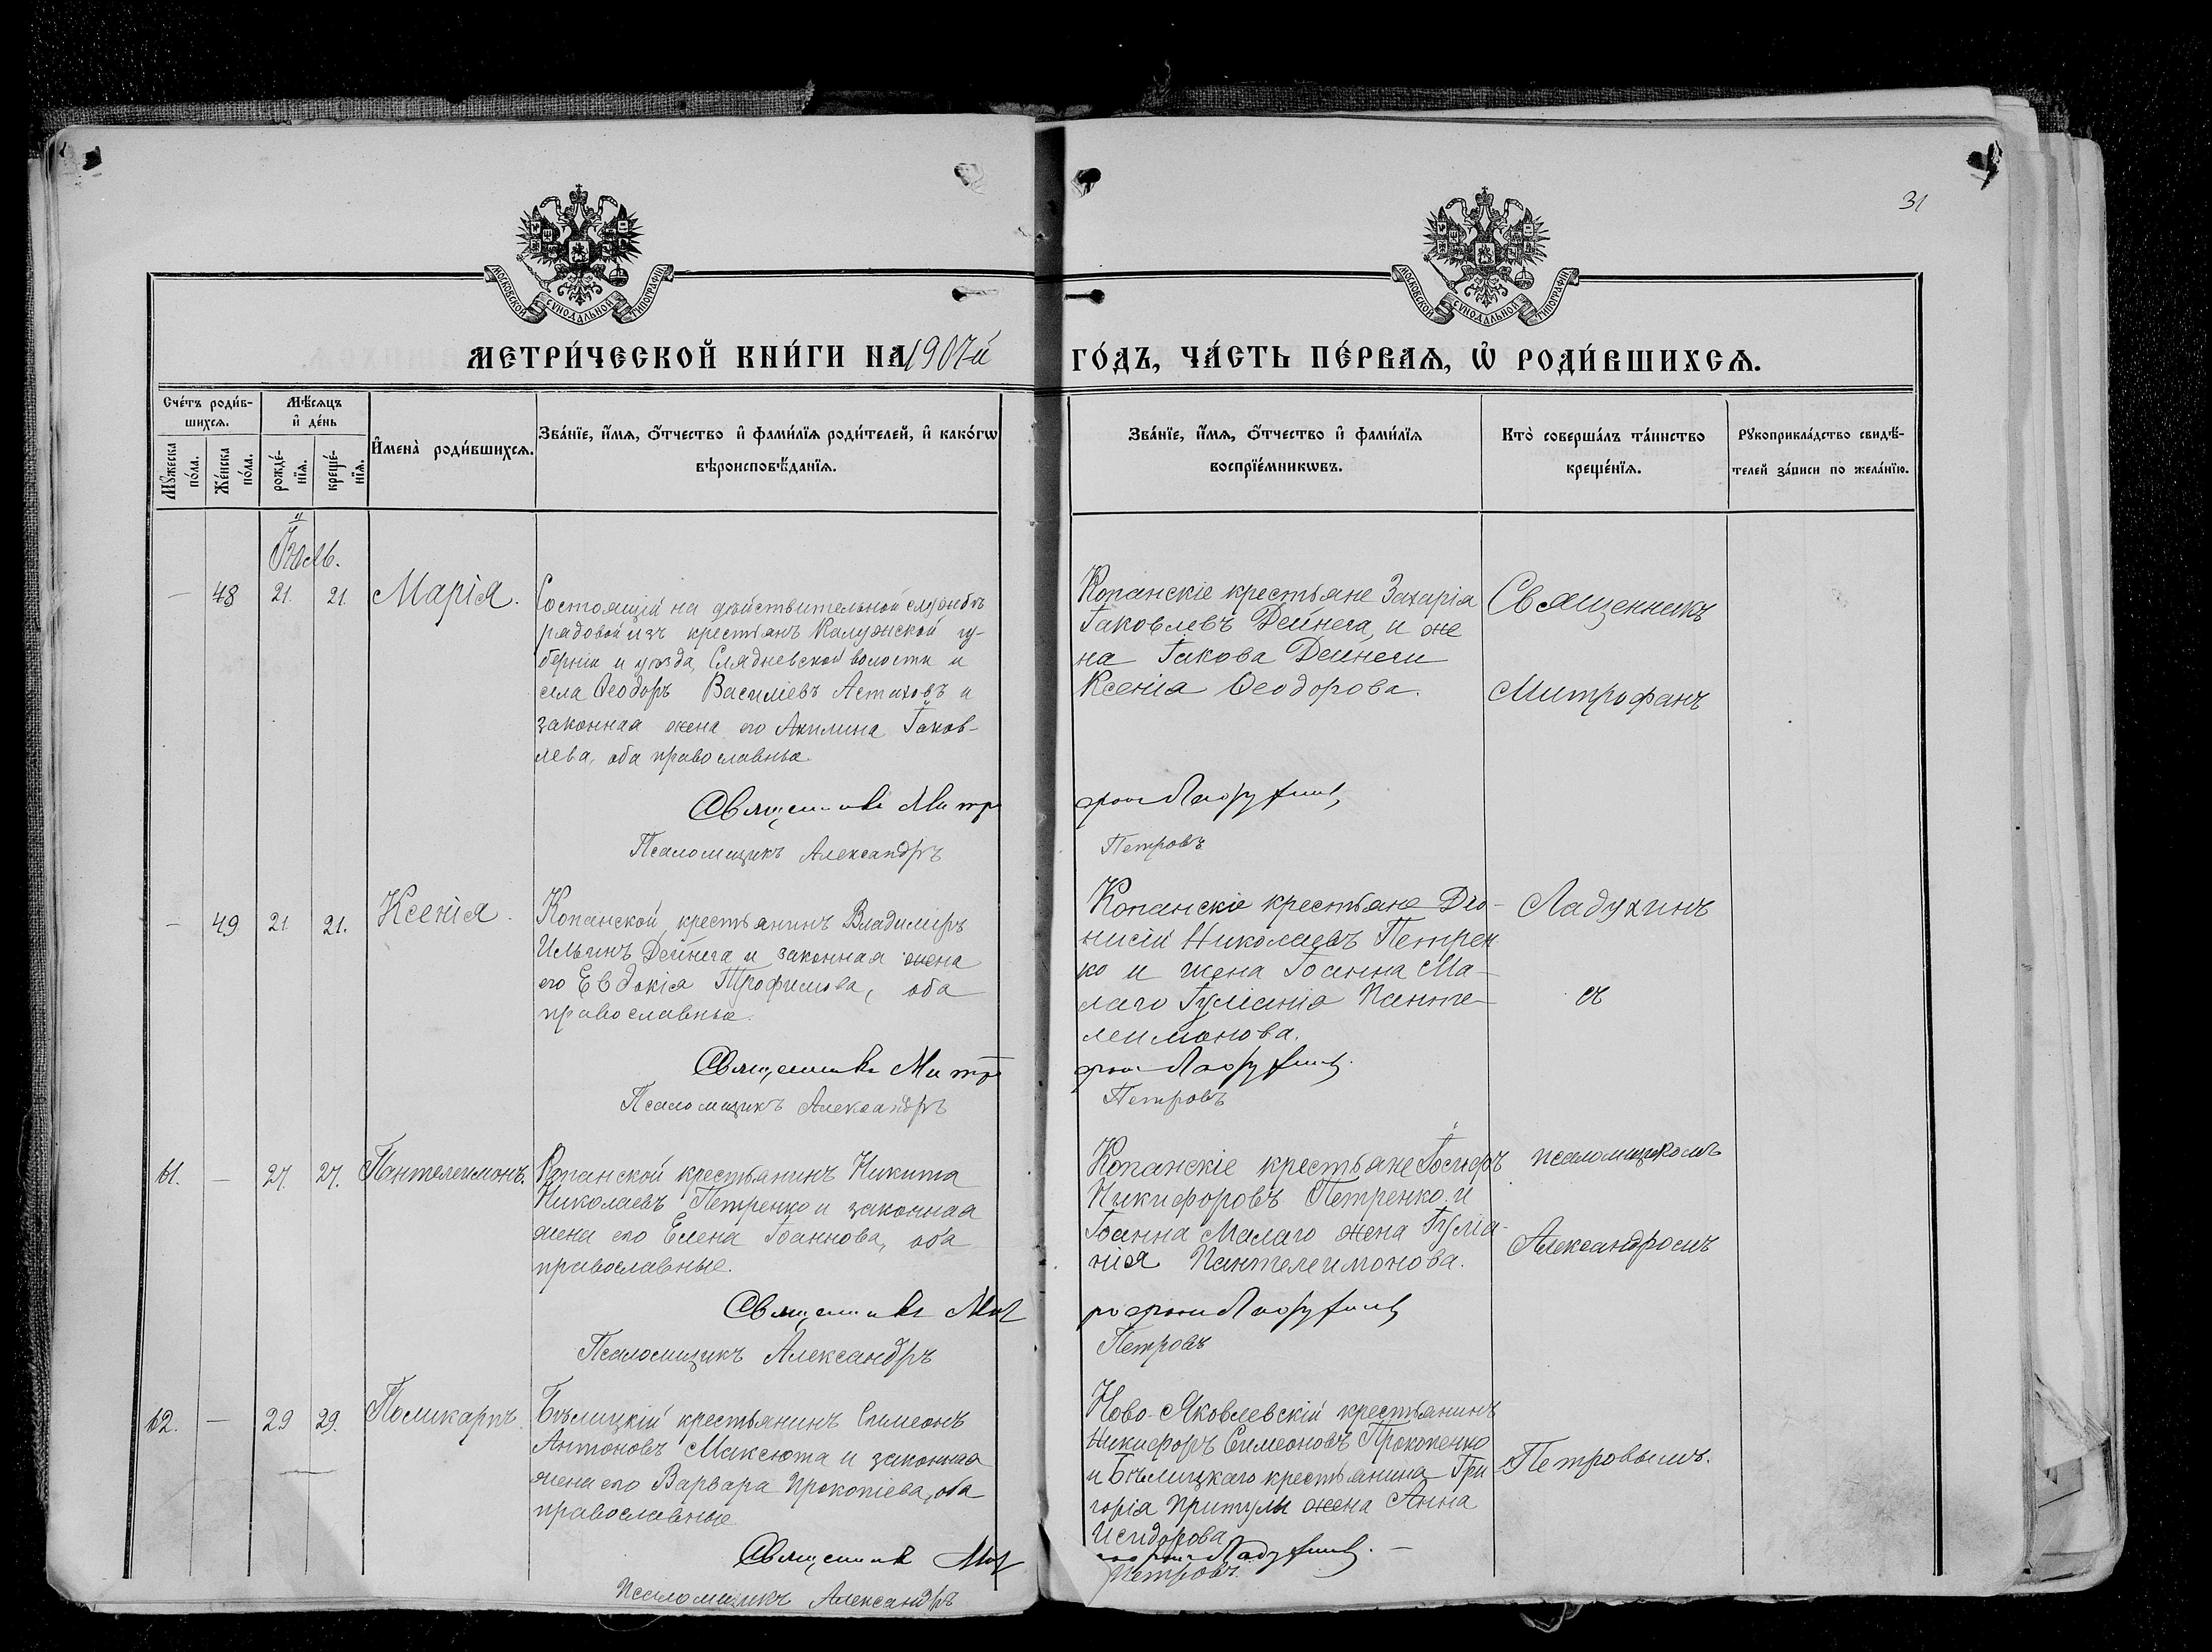 31
МОСКОВСКОЙ СѴНОДАЛЬНОЙ ТИПОГРАФІИ
МОСКОВСКОЙ СѴНОДАЛЬНОЙ ТИПОГРАФІИ
МЕТРИ́ЧЕСКОЙ КНИ́ГИ НА 1907й
ГО́ДЪ, ЧА́СТЬ ПЕ́РВАЯ, Ѡ҆ РОДИ́ВШИХСЯ.
Сче́тъ роди́в-
шихся.
Мꙋжеска по́ла.
Же́нска по́ла.
Мѣ́сяцъ и҆ де́нь
рожде́-нїя.
креще́-нїя.
И҆мена̀ роди́вшихся.
Зва́нїе, и҆́мя, ѻ҆́тчество и҆ фами́лїя роди́телей, и҆ како́гѡ
вѣроисповѣ́данїя.
Зва́нїе, и҆́мя, ѻ҆́тчество и҆ фами́лїя
воспрїе́мникѡвъ.
Кто̀ соверша́лъ та́инство
креще́нїя.
Рꙋкоприкла́дство свидѣ́-
телей за́писи по жела́нїю.
Іюль.
— 48 21. 21. Марія.
Состоящій на дѣйствительной службѣ
рядовой изъ крестьянъ Калужской гу-
берніи и уѣзда, Слядневской волости и
села Ѳеодоръ Василіевъ Астаховъ и
законная жена его Акилина Іаков-
лева, оба православные.
Священникъ Митро
Псаломщикъ Александръ
Копанскіе крестьяне Захарія
Іаковлевъ Дейнега, и же
на Іакова Дейнеги
Ксенія Ѳеодорова.
фанъ Ладухинъ
Петровъ
Священникъ
Митрофанъ
— 49 21 21. Ксенія.
Копанской крестьянинъ Владиміръ
Ильинъ Дейнега и законная жена
его Евдокія Трофимова, оба
православные.
Священникъ Митро
Псаломщикъ Александръ
Копанскіе крестьяне Діо-
нисій Николаевъ Петрен
ко и жена Іоанна Ма-
лаго Іуліанія Панте-
леимонова.
фанъ Ладухинъ.
Петровъ
Ладухинъ
съ
61. — 27. 27. Пантелеимонъ.
Копанской крестьянинъ Никита
Николаевъ Петренко и законная
жена его Елена Іоаннова, оба
православные.
Священникъ Мит
Псаломщикъ Александръ
Копанскіе крестьяне Іосифъ
Никифоровъ Петренко и
Іоанна Малаго жена Іуліа-
нія Пантелеимонова.
рофанъ Ладухинъ
Петровъ
псаломщикомъ
Александромъ
62. — 29 29. Поликарпъ.
Бѣлицкій крестьянинъ Симеонъ
Антоновъ Максюта и законная
жена его Варвара Прокопіева, оба
православные
Священникъ Мит
Псаломщикъ Александръ
Ново-Яковлевскій крестьянинъ
Никифоръ Симеоновъ Прокопенко
и Бѣлицкаго крестьянина Гри
горія Притулы жена Анна
Исидорова
рофанъ Ладухинъ. —
Петровъ.
Петровымъ.